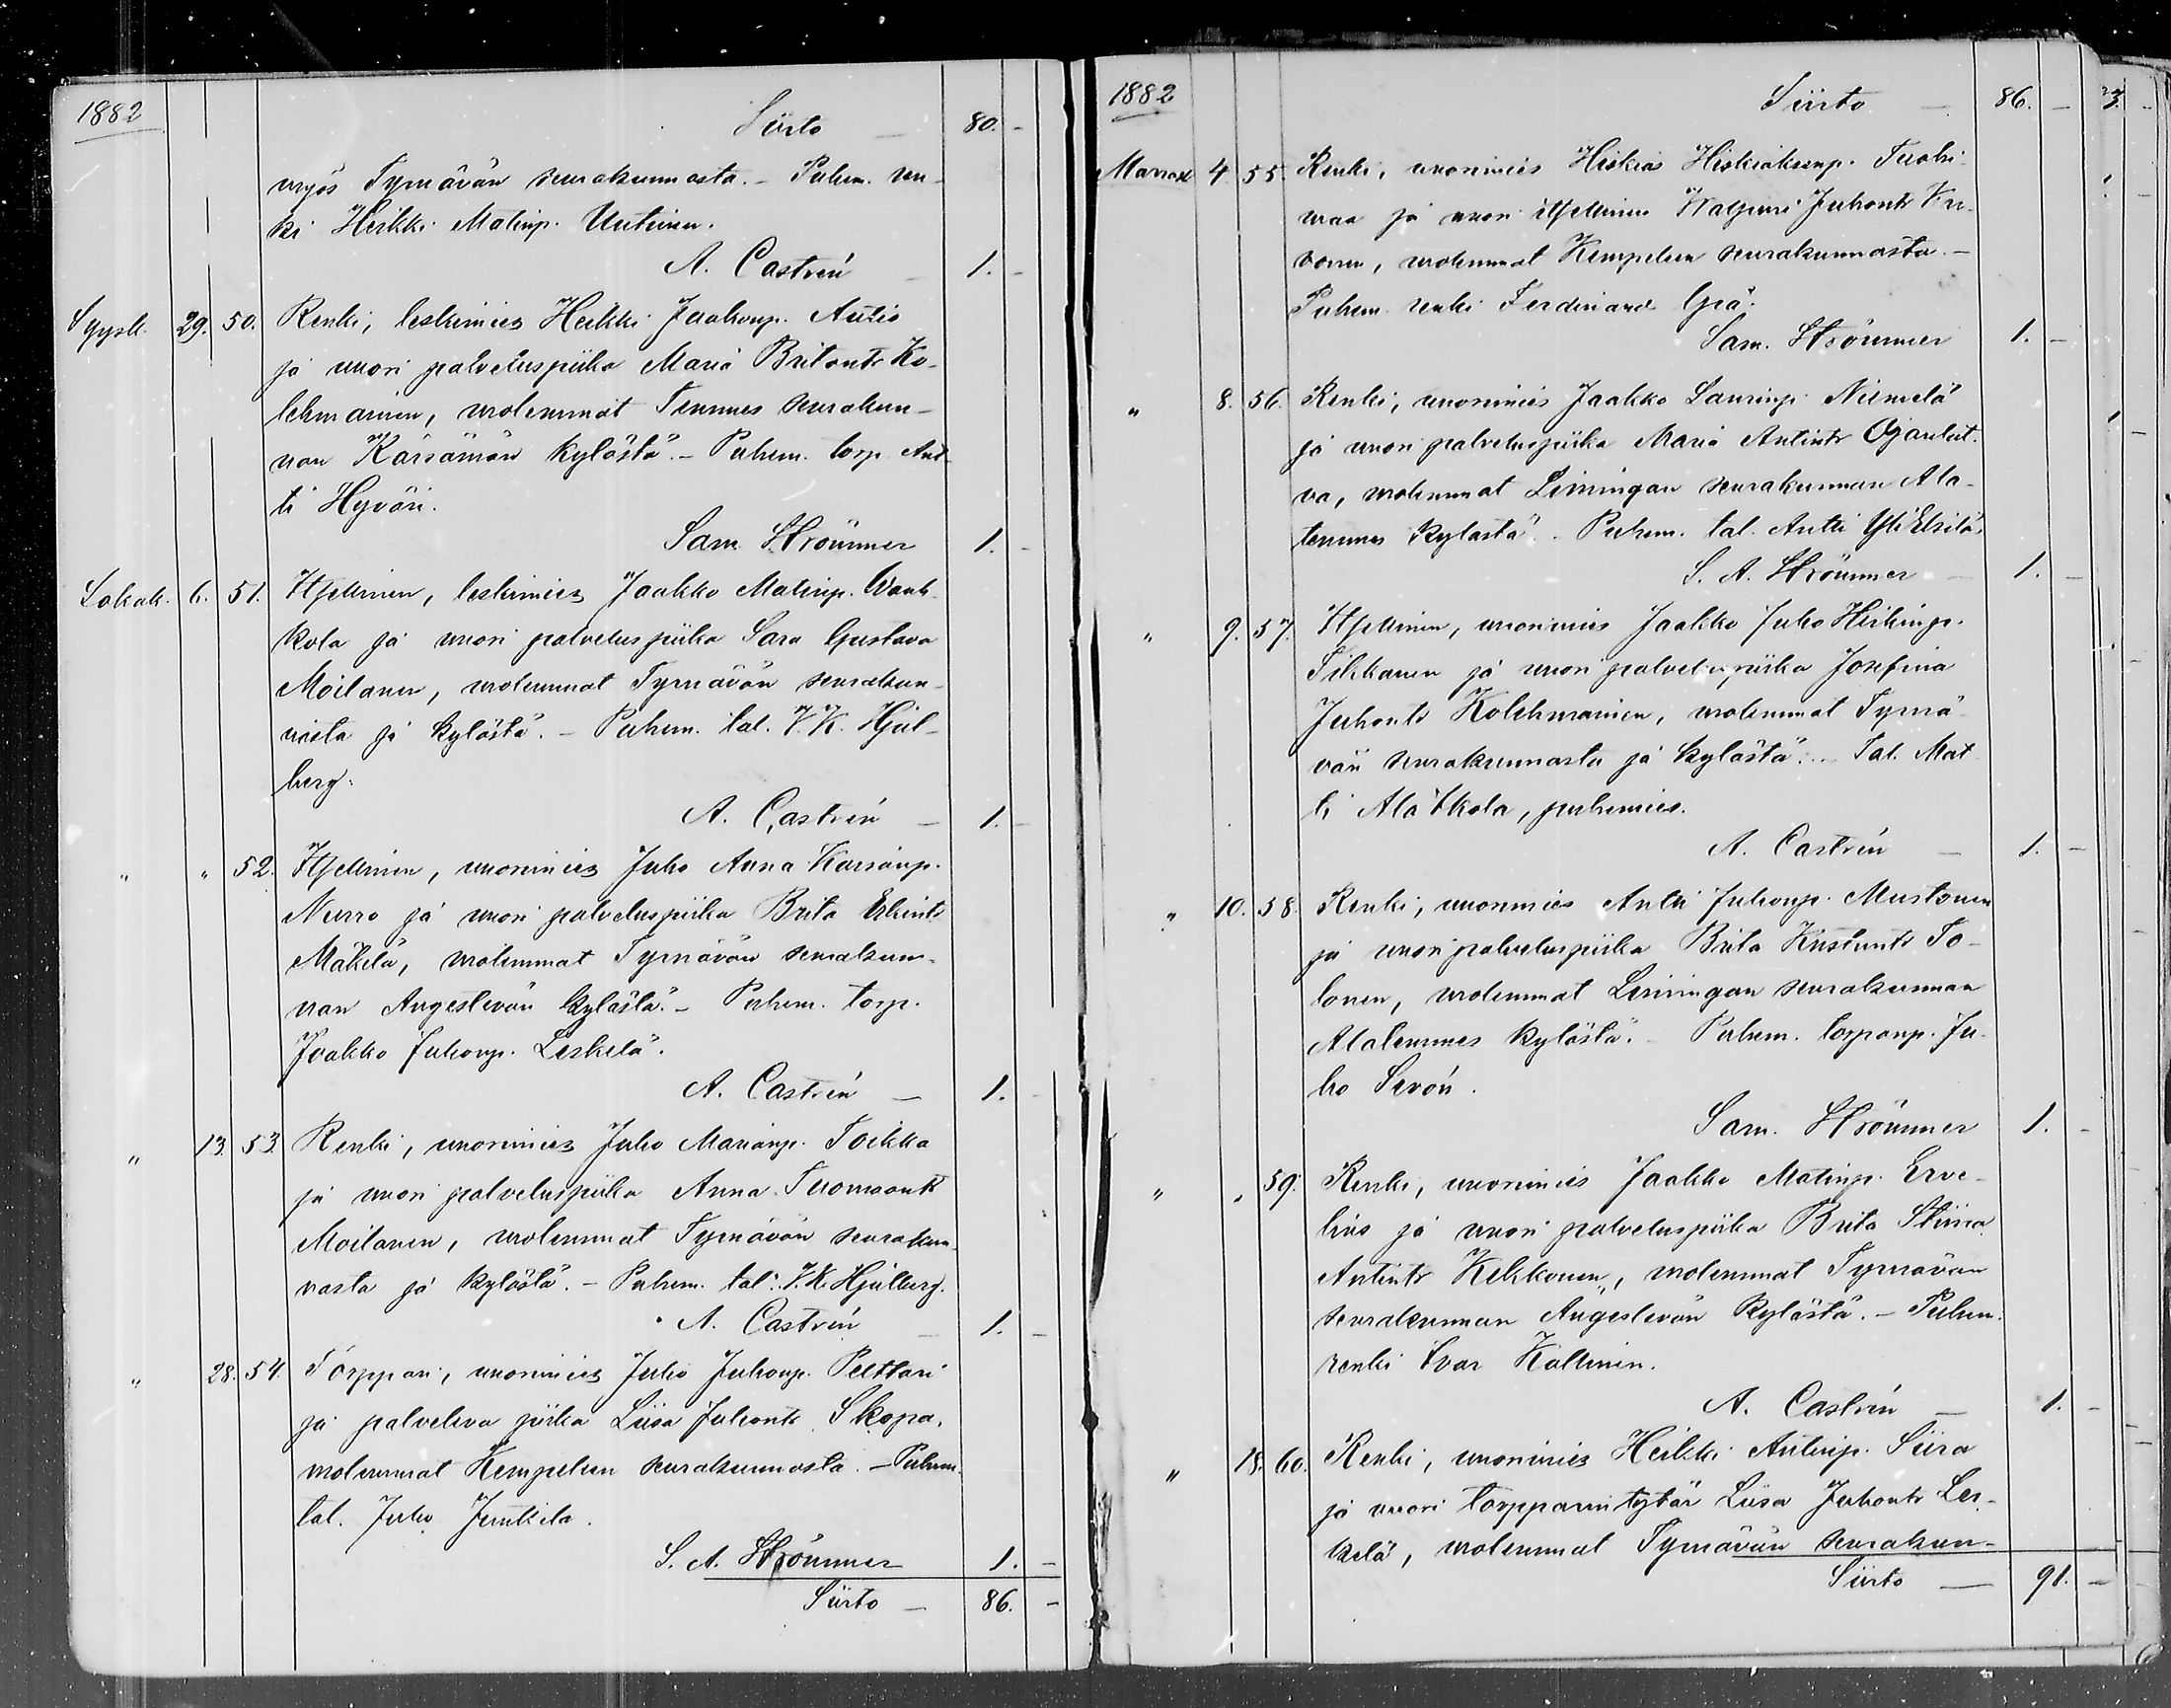 1882
Siirto — 80. -
myös Tyrnävän seurakunnasta. - Puhem. ren-
ki Heikki Matinp. Uutinen.
A. Castrén — 1. -
Syysk. 29. 50. Renki, leskimies Heikki Jaakonp. Autio
ja nuori palveluspiika Maria Britantr Ko-
lehmainen, molemmat Temmes seurakun-
nan Kärsämän kylästä. - Puhem. torp. Ant-
ti Hyväri.
Sam. Strömmer 1. -
Lokak. 6. 51. Itsellinen, leskimies Jaakko Matinp. Wauh-
kola ja nuori palveluspiika Sara Gustava
Moilanen, molemmat Tyrnävän seurakun-
nasta ja kylästä. - Puhem. tal. V. K. Hjul-
berg.
A. Castrén — 1. -
" " 52. Itsellinen, nuorimies Juho Anna Kaisanp.
Nurro ja nuori palveluspiika Brita Erkintr
Mäkelä, molemmat Tyrnävän seurakun-
nan Angeslevän kylästä. - Puhem. torp.
Jaakko Juhonp. Leskelä.
A. Castrén — 1. -
" 13. 53. Renki, nuorimies Juho Marianp. Toikka
ja nuori palveluspiika Anna Tuomaantr
Moilanen, molemmat Tyrnävän seurakun-
nasta ja kylästä. - Puhem. tal. V. K. Hjulberg.
A. Castrén — 1. -
" 28. 54. Torppari, nuorimies Juho Juhonp. Pelttari
ja palveleva piika Liisa Juhontr Skopa,
molemmat Kempeleen seurakunnasta. - Puhem.
tal. Juho Junttila.
S. A. Strömmer 1. -
Siirto — 86. -
1882
Siirto — 86. -
Marrask. 4. 55. Renki, nuorimies Hiskias Hiskiaksenp. Tuohi-
maa ja nuori itsellinen Walpuri Juhontr
molemmat Kempeleen seurakunnasta. -
Puhem. renki Ferdinand Grä.
Sam. Strömmer 1. -
" 8. 56. Renki, nuorimies Jaakko Laurinp. Niemelä
ja nuori palveluspiika Maria Antintr Ojanlat-
va, molemmat Limingan seurakunnan Ala-
temmes kylästä. Puhem. tal. Antti YliElsilä.
S. A. Strömmer — 1. -
" 9. 57. Itsellinen, nuorimies Jaakko Juho Heikinp.
Tikkanen ja nuori palveluspiika Josefina
Juhontr Kolehmainen, molemmat Tyrnä-
vän seurakunnasta ja kylästä. - Tal. Mat-
ti Ala Ikola, puhemies.
A. Castrén — 1. -
" 10. 58. Renki, nuorimies Antti Juhonp. Mustonen
ja nuori palveluspiika Brita Kustuntr To-
lonen, molemmat Limingan seurakunnan
Alatemmes kylästä. - Puhem. torpanp. Ju-
ho Savón.
Sam. Strömmer 1. -
" " 59. Renki, nuorimies Jaakko Matinp. Erve-
lius ja nuori palveluspiika Brita Stiina
Antintr Kekkonen, molemmat Tyrnävän
seurakunnan Angeslevän kylästä. - Puhem.
renki Ivar Kallinen.
A. Castrén — 1. -
" 18. 60. Renki, nuorimies Heikki Antinp. Siira
ja nuori torpparintytär Liisa Juhontr Les-
kelä, molemmat Tyrnävän seurakun-
Siirto — 91. -